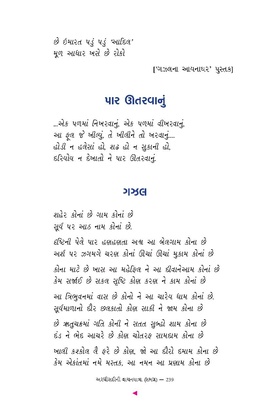 છે ઇમારત પડું પડું 'આદિલ'
મૂળ આધાર ખસે છે રોકો
['ગઝલના આયનાઘર' પુસ્તક]
પાર ઊતરવાનું
...એક પળમાં નિખરવાનું, એક પળમાં વીખરવાનું.
આ ફૂલ જે ખીલ્યું, તે ખીલીને તો ખરવાનું...
હોડી ન હલેસાં હો, શઢ હો ન સુકાની હો,
દરિયોય ન દેખાતો ને પાર ઊતરવાનું.
ગઝલ
શહેર કોનાં છે ગામ કોનાં છે
સૂર્ય પર આડ નામ કોનાં છે.
દૃષ્ટિની પેલે પાર હણહણતા અશ્વ આ બેલગામ કોના છે
અર્સ પર ઝગમગે ચરણ કોનાં ઊંચાં ઊંચાં મુકામ કોનાં છે
કોના માટે છે ખાસ આ મહેફિલ ને આ દીવાનેઆમ કોનાં છે
કેમ સર્જાઈ છે સકલ સૃષ્ટિ કોણ કરણ ને કામ કોનાં છે
આ ત્રિભુવનમાં વાસ છે કોનો ને આ ચારેય ધામ કોનાં છે.
સૂર્યમાળાનો દૌર છલકાતો કોણ સાકી ને જામ કોના છે
છે ઋતુચક્રમાં ગતિ કોની ને સતત સુબ્હો શામ કોના છે
દંડ ને ભેદ આચરે છે કોણ ચોતરફ સામદામ કોના છે
ખાલી કરકોલ લૈ ફરે છે કોણ, જો આ દૌરો દમામ કોના છે
કેમ એકાંતમાં નમે મસ્તક, આ નમન આ પ્રણામ કોના છે
— 239